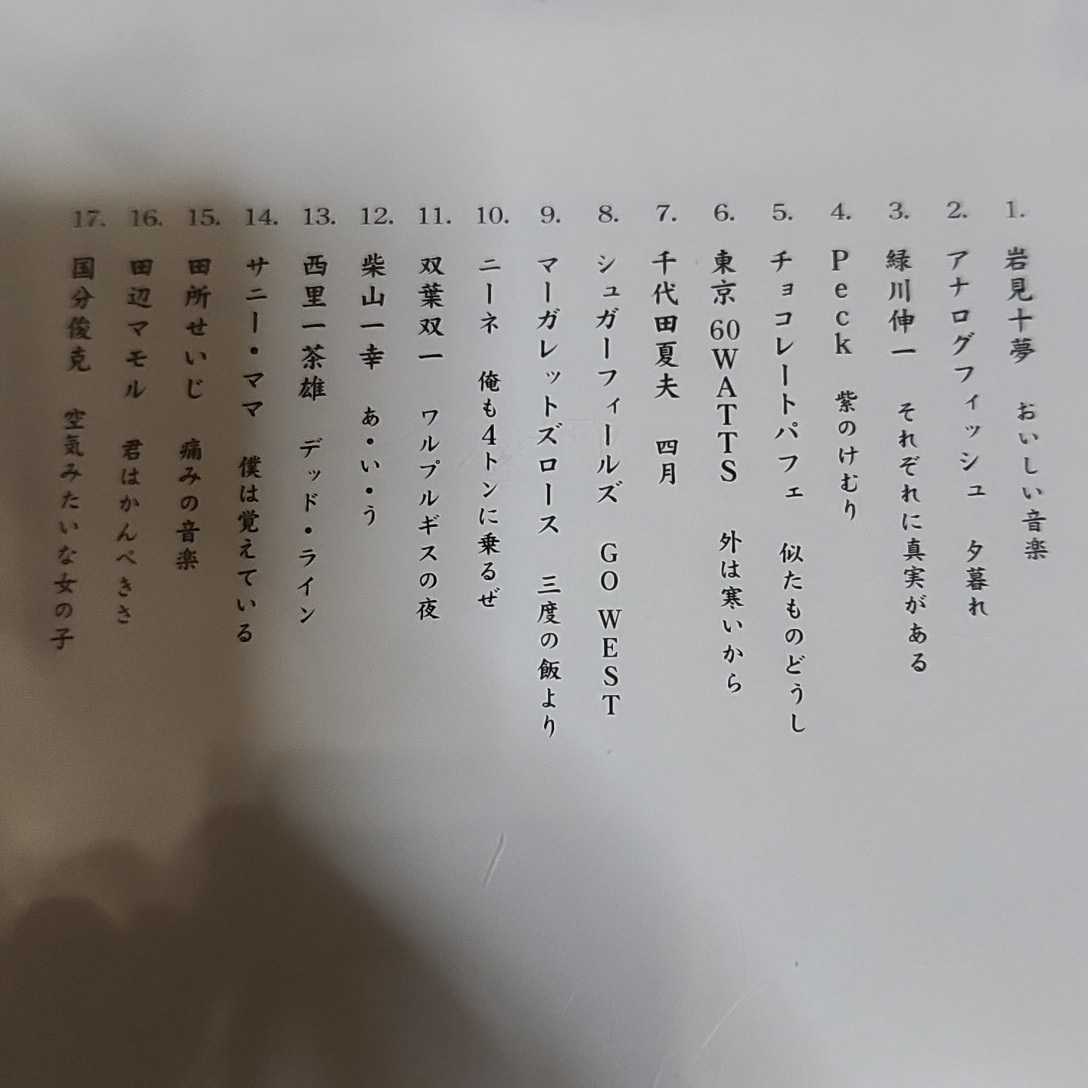 1. 岩見十夢 おいしい音楽
2. アナログフィッシュ 夕暮れ
3. 緑川伸一 それぞれに真実がある
4. Peck 紫のけむり
5. チョコレートパフェ 似たものどうし
6. 東京60WATTS 外は寒いから
7. 千代田夏夫 四月
8. シュガーフィールズ GO WEST
9. マーガレットズロース 三度の飯より
10. ニーネ 俺も4トンに乗るぜ
11. 双葉双一 ワルプルギスの夜
12. 柴山一幸 あ・い・う
13. 西里一茶雄 デッド・ライン
14. サニー・ママ 僕は覚えている
15. 田所せいじ 痛みの音楽
16. 田辺マモル 君はかんぺきさ
17. 国分俊克 空気みたいな女の子